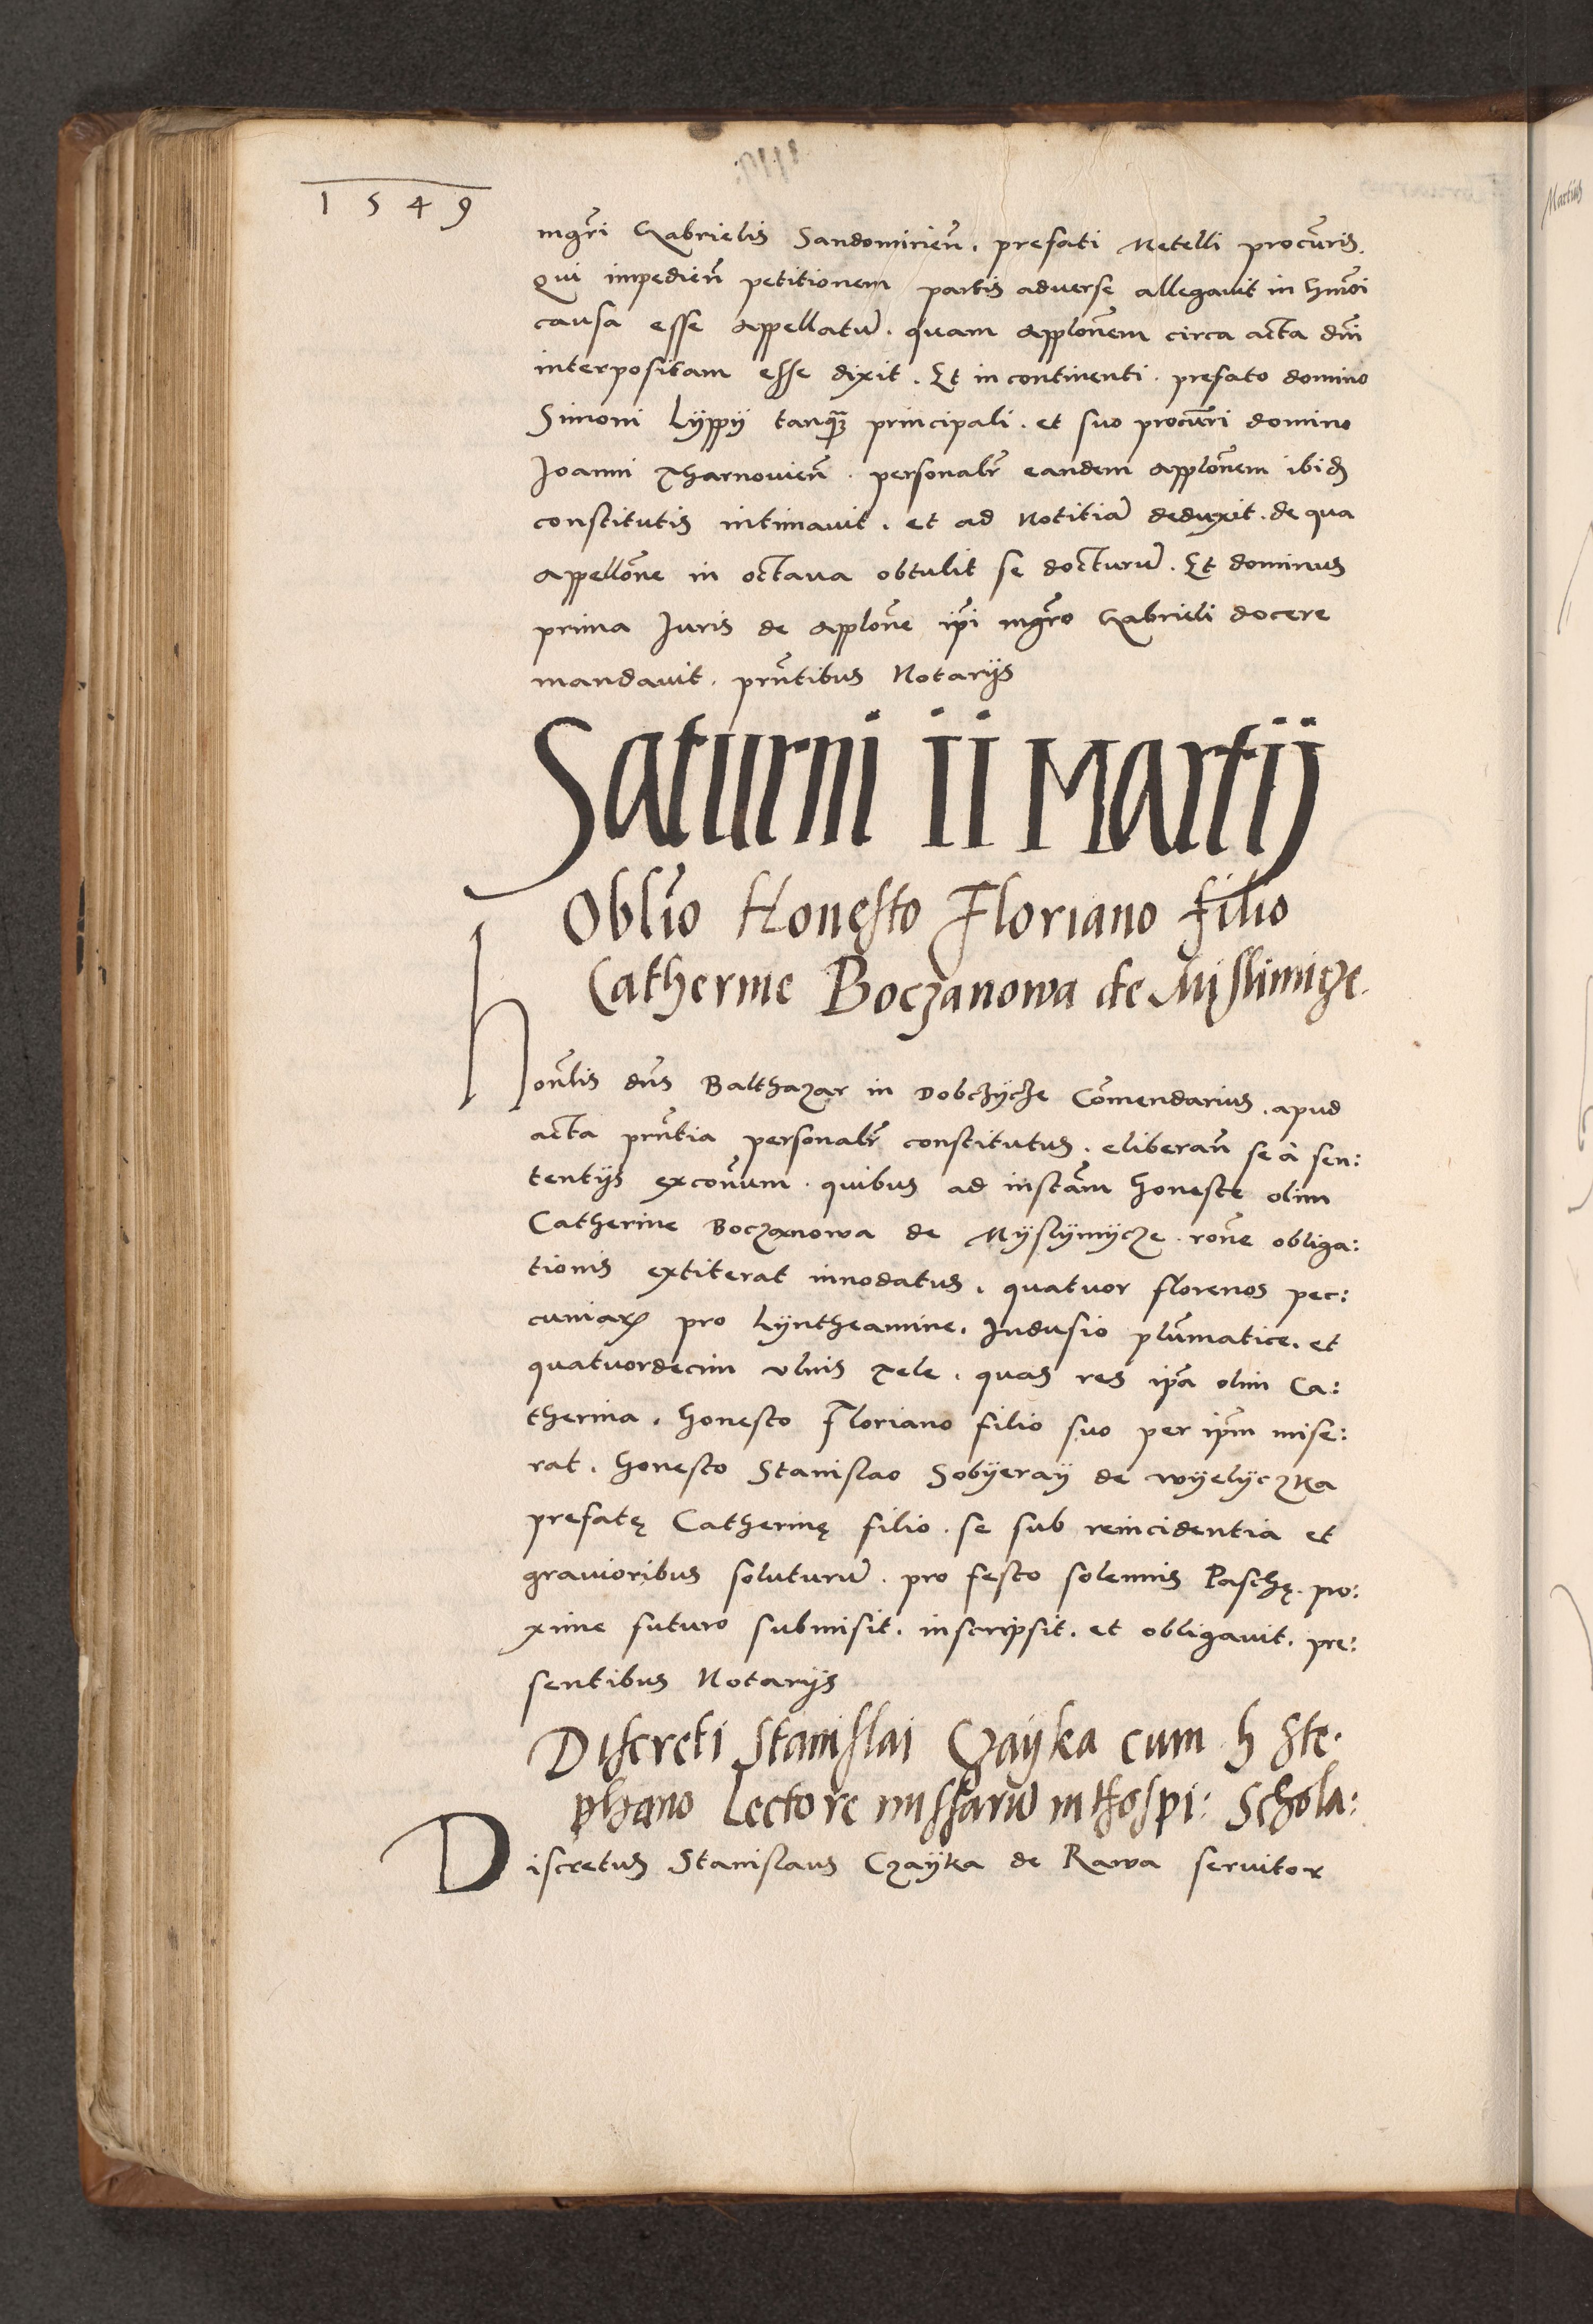 1549
mgri Gabrielis Sandomirien̄. prefati Metelli procuris.
Qui impedien̄ petitionem partis adverse allegavit in hmōi
causa esse appellatū. quam applōnem circa acta dn̄i
interpositam esse dixit. Et in continenti. prefato domino
Simoni Lyppy tanq̄ꝫ principali. et suo procuri domino
Joanni Tharnovien̄. personalr̄ eandem applōnem ibid
constitutis intimavit. et ad Notitiā deduxit. de qua
appellōne in octava obtulit se docturū. Et dominus
prima Juris de applōne ip̄i mgr̄o Gabrieli docere
mandavit. prn̄tibus Notarijs
Saturni II Martij
Oblīo Honesto Floriano filio
Catherine Boczanowa de Mislimicze.
Honlis dn̄s Balthazar in Dobczycze Cōmendarius. apud
acta prn̄tia personalr̄ constitutus. eliberan̄ se à sen:
tentijs excōnum. quibus ad instām honeste olim
Catherine Boczanowa de Myslymycze. rōne obliga:
tionis extiterat innodatus. quatuor florenos pec:
cuniaꝝ pro Lyntheamine. Indusio plūmatice. et
quatuordecim vlnis Tele. quas res ip̄a olim Ca:
therina. honesto Floriano filio suo per ip̄m mise:
rat. honesto Stanislao Sobyeray de Wyelyczka
prefatę Catherinę filio. se sub reincidentia et
gravioribus soluturū. pro festo solemnis Paschę. pro:
xime futuro submisit. inscripsit. et obligavit. pre:
sentibus Notarijs
Discreti Stanislai Czayka cum h Ste.
phano Lectore missarū in Hospi: Schola:
Discretus Stanislaus Czayka de Rawa servitor
Martius